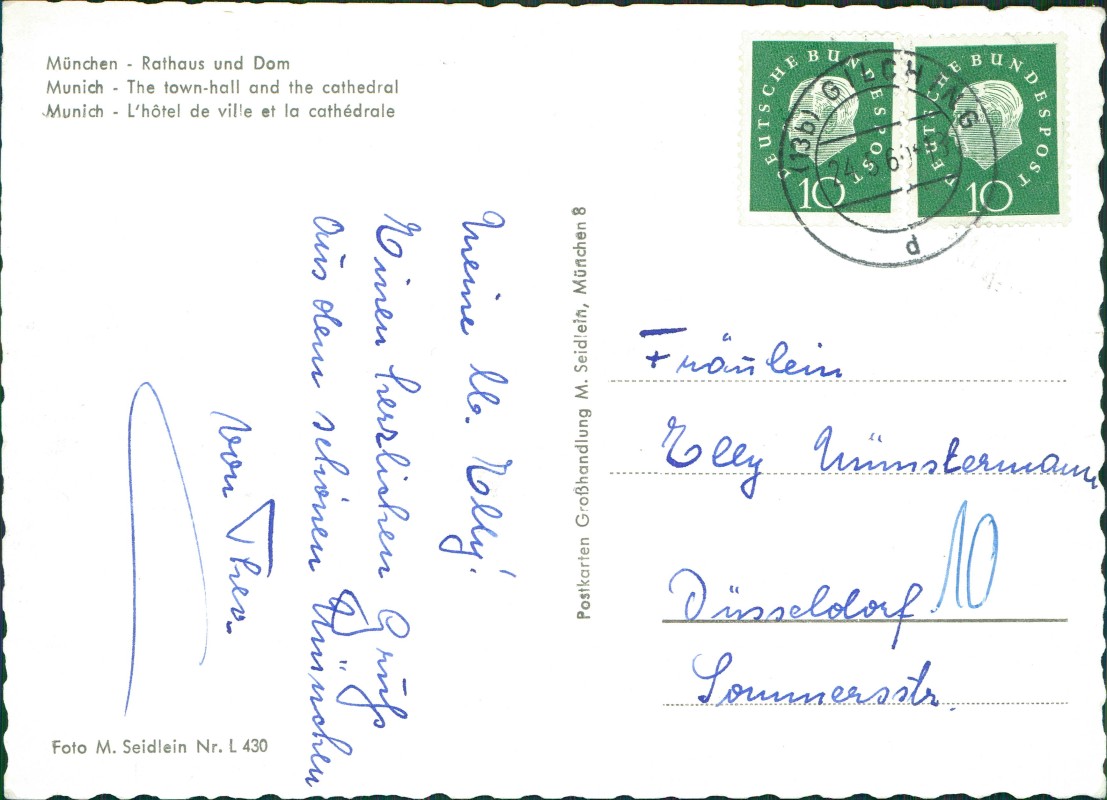 München - Rathaus und Dom
Munich - The town-hall and the cathedral
Munich - L'hôtel de ville et la cathédrale
Meine lb. Elly!
Einen herzlichen Gruß
aus dem schönen München
von
Foto M. Seidlein Nr. L 430
Postkarten Großhandlung M. Seidlein, München 8
DEUTSCHE BUNDESPOST
10
DEUTSCHE BUNDESPOST
10
(13b) GILCHING
d
Fräulein
Elly Münstermann
Düsseldorf 10
Sommersstr.